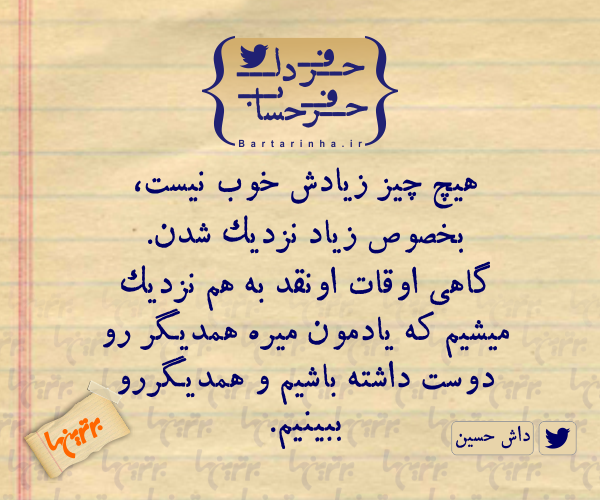 حرف دل
حرف حساب
Bartarinha.ir
هیچ چیز زیادش خوب نیست،
بخصوص زیاد نزدیك شدن.
گاهی اوقات اونقد به هم نزدیك
میشیم که یادمون میره همدیگر رو
دوست داشته باشیم و همدیگررو
ببینیم.
داش حسین
برترین‌ها